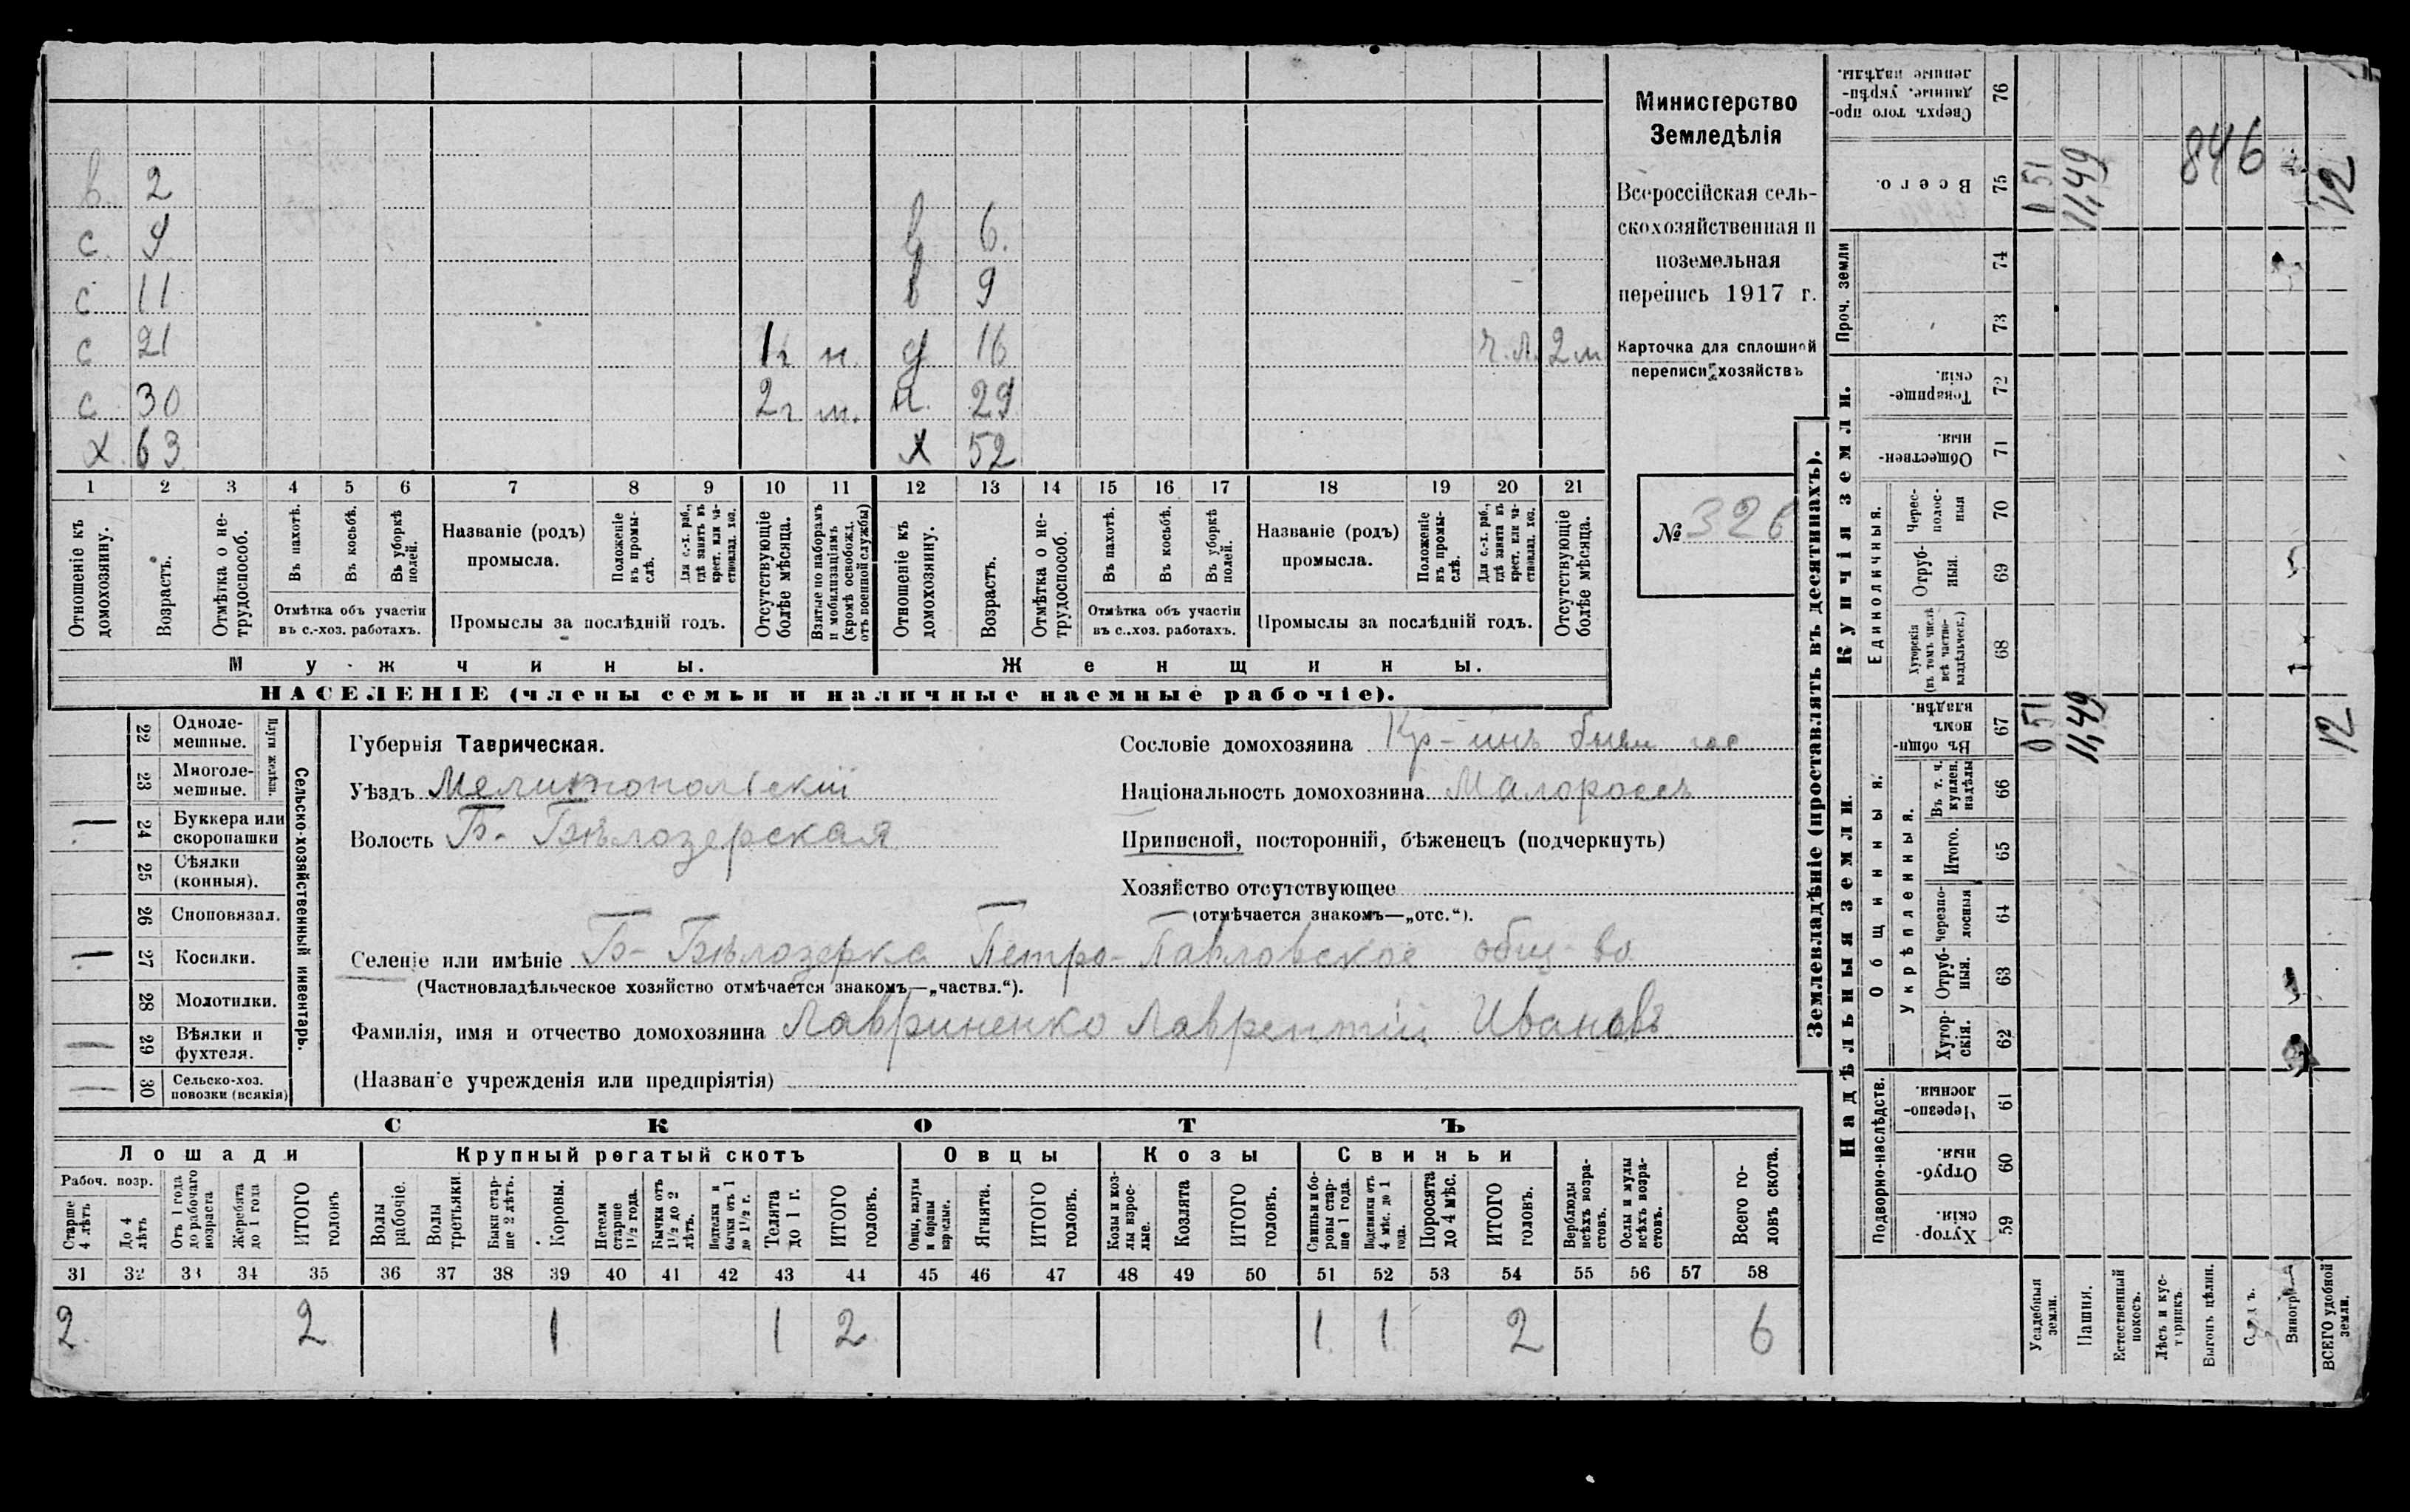 в. 2
с 9 в 6.
с 11 в 9
с 21 1 г н. д 16 ч.л. 2 м
с 30 2 г м. н. 29
х 63 х 52
1 2 3 4 5 6 7 8 9 10 11 12 13 14 15 16 17 18 19 20 21
Отношеніе къ домохозяину.
Возрастъ.
Отмѣтка о не-трудоспособ.
Въ пахотѣ.
Въ косьбѣ.
Въ уборкѣ полей.
Отмѣтка объ участіи въ с.-хоз. работахъ.
Названіе (родъ) промысла.
Положеніе въ промы-слѣ.
Для с.-х. раб., гдѣ занятъ въ крест. или ча-стновлад. хоз.
Промыслы за послѣдній годъ.
Отсутствующіе болѣе мѣсяца.
Взятые по наборамъ и мобилизаціямъ (кромѣ освобожд. отъ военной службы)
Отношеніе къ домохозяину.
Возрастъ.
Отмѣтка о не-трудоспособ.
Въ пахотѣ.
Въ косьбѣ.
Въ уборкѣ полей.
Отмѣтка объ участіи въ с.-хоз. работахъ.
Названіе (родъ) промысла.
Положеніе въ промы-слѣ.
Для с.-х. раб., гдѣ занята въ крест. или ча-стновлад. хоз.
Промыслы за послѣдній годъ.
Отсутствующіе болѣе мѣсяца.
Мужчины. Женщины.
НАСЕЛЕНІЕ (члены семьи и наличные наемные рабочіе).
Министерство
Земледѣлія
Всероссійская сель-
скохозяйственная и
поземельная
перепись 1917 г.
Карточка для сплошной
переписи хозяйствъ
№ 326
22 Одноле-мешные.
23 Многоле-мешные.
Плуги желѣзн.
24 Буккера или скоропашки
25 Сѣялки (конныя).
26 Сноповязал.
27 Косилки.
28 Молотилки.
29 Вѣялки и фухтеля.
30 Сельско-хоз. повозки (всякія)
Сельско-хозяйственный инвентарь.
Губернія Таврическая.
Уѣздъ Мелитопольскій
Волость Б- Бѣлозерская
Сословіе домохозяина Кр-инъ бывш гос
Національность домохозяина Малороссъ
Приписной, посторонній, бѣженецъ (подчеркнуть)
Хозяйство отсутствующее
(отмѣчается знакомъ—„отс.“).
Селеніе или имѣніе Б- Бѣлозерка Петро-Павловское общ-во
(Частновладѣльческое хозяйство отмѣчается знакомъ—„частвл.“).
Фамилія, имя и отчество домохозяина Лавриненко Лаврентій Ивановъ
(Названіе учрежденія или предпріятія)
СКОТЪ
Лошади Крупный рогатый скотъ Овцы Козы Свиньи
Рабоч. возр.
Старше 4 лѣтъ
До 4 лѣтъ
Отъ 1 года до рабочаго возраста
Жеребята до 1 года
ИТОГО головъ
Волы рабочіе.
Волы третьяки.
Быки стар-ше 2 лѣтъ.
Коровы.
Нетели старше 1 1/2 года.
Бычки отъ 1 1/2 до 2 лѣтъ.
Подтелки и бычки отъ 1 до 1 1/2 г.
Телята до 1 г.
ИТОГО головъ.
Овцы, валухи и бараны взрослые.
Ягнята.
ИТОГО головъ.
Козы и коз-лы взрос-лые.
Козлята
ИТОГО головъ.
Свиньи и бо-ровы стар-ше 1 года.
Подсвинки отъ 4 мѣс. до 1 года.
Поросята до 4 мѣс.
ИТОГО головъ.
Верблюды всѣхъ возра-стовъ.
Ослы и мулы всѣхъ возра-стовъ.
Всего го-ловъ скота.
31 32 33 34 35 36 37 38 39 40 41 42 43 44 45 46 47 48 49 50 51 52 53 54 55 56 57 58
2. 2 1 1 2 1 1 2 6
Землевладѣніе (проставлять въ десятинахъ).
Надѣльныя земли. Купчія земли. Проч. земли
Подворно-наслѣдств.
Общинныя.
Укрѣпленныя.
Единоличныя.
Хутор-скія. 59
Отруб-ныя. 60
Черезпо-лосныя 61
Хутор-скія. 62
Отруб-ныя. 63
Черезпо-лосныя 64
Итого. 65
Въ т. ч. куплен. надѣлы 66
Въ общин-номъ владѣн. 67
Хуторскія (въ томъ числѣ всѣ частно-владѣльческ.) 68
Отруб-ныя. 69
Черес-полос-ныя 70
Обществен-ныя. 71
Товарище-скія. 72
73
74
Всего. 75
Сверхъ того про-данные, укрѣп-ленные надѣлы. 76
Усадебныя земли. 0 51 0 51
Пашня. 11,49 11,49
Естественный покосъ.
Лѣсъ и кус-тарникъ.
Выгонъ цѣлин. 846
Садъ.
Виногр
ВСЕГО удобной земли. 12 12